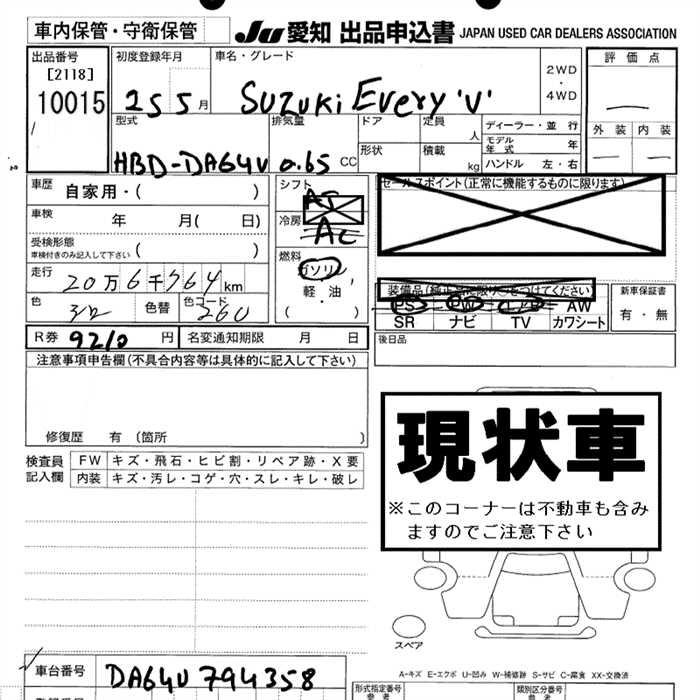 車内保管・守衛保管
Ju 愛知 出品申込書 JAPAN USED CAR DEALERS ASSOCIATION
出品番号
[2118]
10015
初度登録年月
25 5 月
車名・グレード
SUZUKI EVERY 'V'
2WD
・
4WD
評価点
外装 内装
型式
HBD-DA64V
排気量
0.65 CC
ドア
形状
定員
人
積載
kg
ディーラー・並行
モデル
年式 年
ハンドル 左・右
車歴 自家用・( )
車検 年 月( 日)
受検形態
車検付きのみ記入して下さい ( )
走行 20万6千764 km
色 色替 色コード 260
シフト
A5
冷房
AC
燃料
ガソリン
軽・油
( )
セールスポイント(正常に機能するものに限ります)
装備品(純正品に限り○をつけてください)
PS PW AW
SR ナビ TV カワシート
新車保証書
有・無
後日品
R券 9210 円 名変通知期限 月 日
注意事項申告欄(不具合内容等は具体的に記入して下さい)
修復歴 有 (箇所 )
検査員
記入欄
FW キズ・飛石・ヒビ割・リペア跡・X要
内装 キズ・汚レ・コゲ・穴・スレ・キレ・破レ
現状車
※このコーナーは不動車も含み
ますのでご注意下さい
スペア
A-キズ E-エクボ U-凹み W-補修跡 S-サビ C-腐食 XX-交換済
車台番号 DA64V 794358
型式指定番号
参考
類別区分番号
参考
登録番号